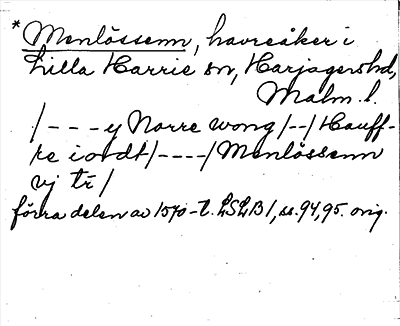 * Menlössenn, havreåker i
Lilla Harrie sn, Harjagers hd,
Malm. l.
/- - - y Norre wong /--/ Hauff-
re iordt /----/ Menlössenn
vj tr /
förra delen av 1570-t. LSLB 1, ss. 94, 95. orig.